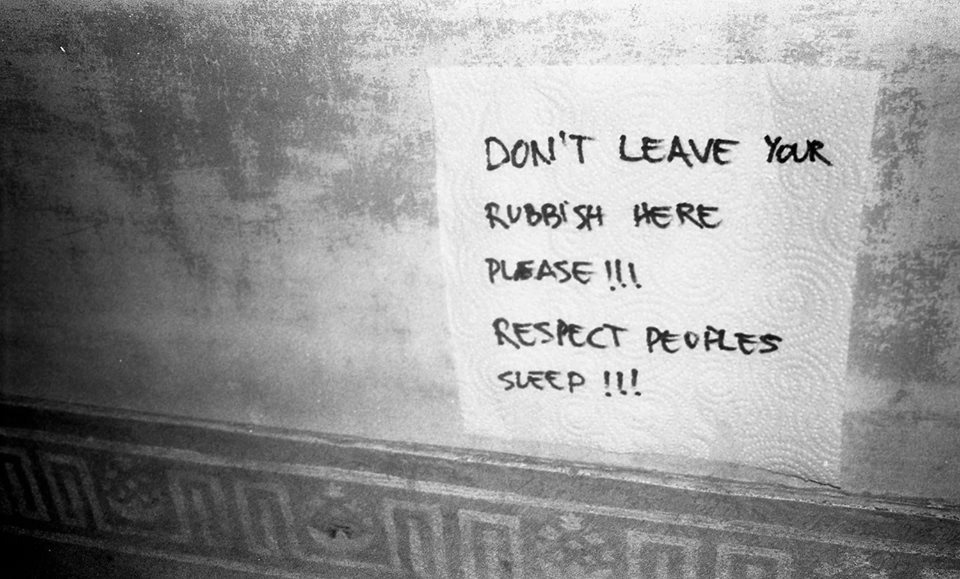 DON'T LEAVE YOUR
RUBBiSH HERE
PLEASE!!!
RESPECT PEOPLES
SLEEP !!!